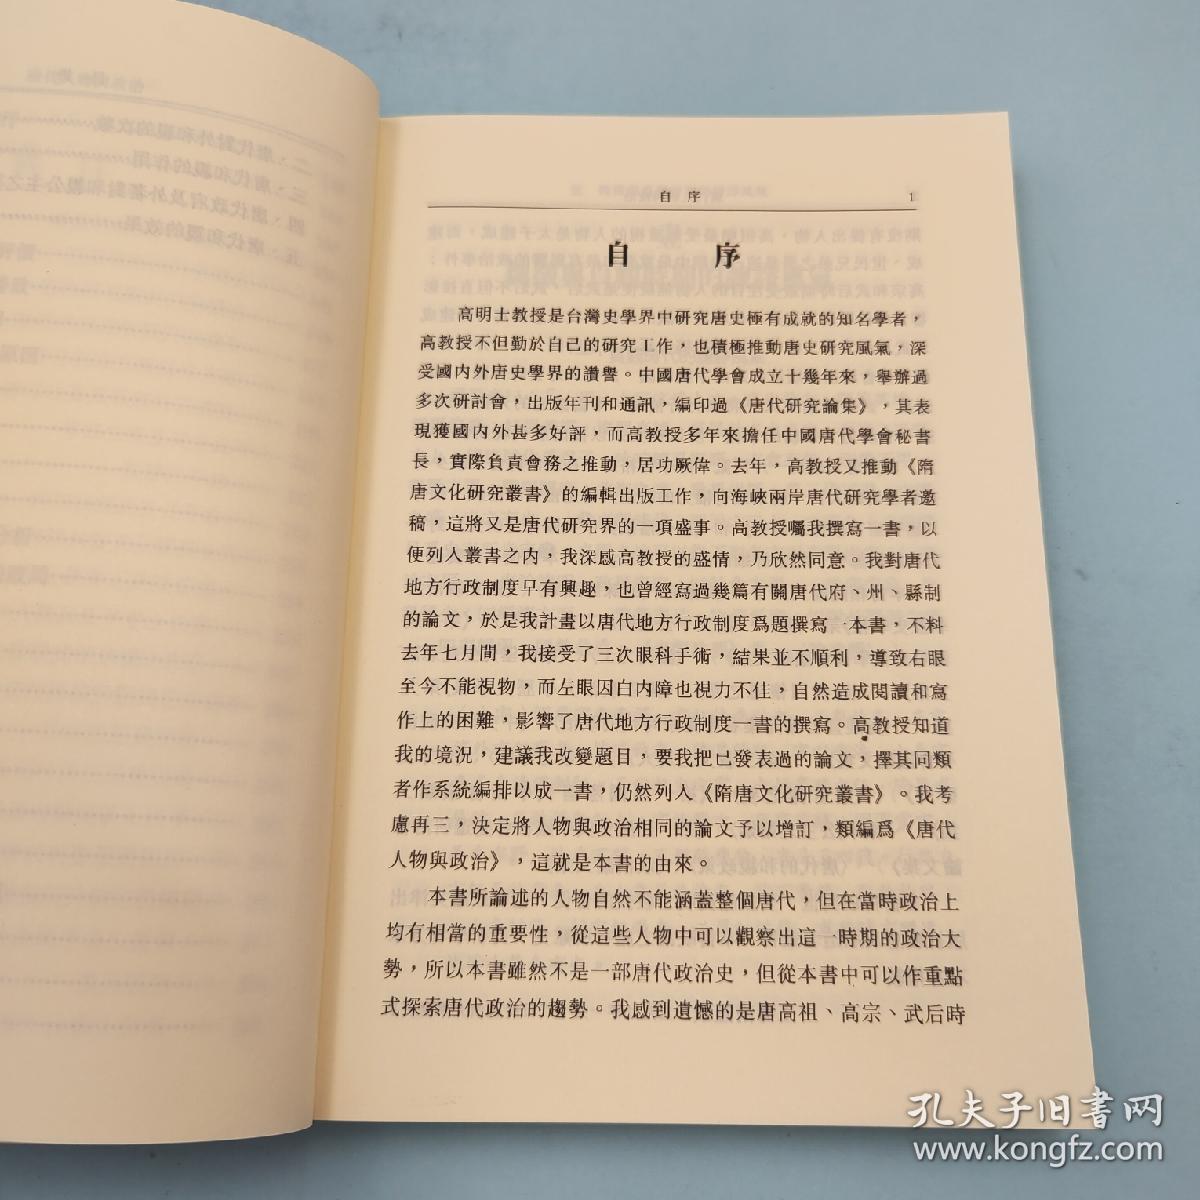 自序 1
自 序
高明士教授是台灣史學界中研究唐史極有成就的知名學者，
高教授不但勤於自己的研究工作，也積極推動唐史研究風氣，深
受國內外唐史學界的讚譽。中國唐代學會成立十幾年來，舉辦過
多次研討會，出版年刊和通訊，編印過《唐代研究論集》，其表
現獲國內外甚多好評，而高教授多年來擔任中國唐代學會秘書
長，實際負責會務之推動，居功厥偉。去年，高教授又推動《隋
唐文化研究叢書》的編輯出版工作，向海峽兩岸唐代研究學者邀
稿，這將又是唐代研究界的一項盛事。高教授囑我撰寫一書，以
便列入叢書之內，我深感高教授的盛情，乃欣然同意。我對唐代
地方行政制度早有興趣，也曾經寫過幾篇有關唐代府、州、縣制
的論文，於是我計畫以唐代地方行政制度爲題撰寫一本書，不料
去年七月間，我接受了三次眼科手術，結果並不順利，導致右眼
至今不能視物，而左眼因白內障也視力不佳，自然造成閱讀和寫
作上的困難，影響了唐代地方行政制度一書的撰寫。高教授知道
我的境況，建議我改變題目，要我把已發表過的論文，擇其同類
者作系統編排以成一書，仍然列入《隋唐文化研究叢書》。我考
慮再三，決定將人物與政治相同的論文予以增訂，類編爲《唐代
人物與政治》，這就是本書的由來。
本書所論述的人物自然不能涵蓋整個唐代，但在當時政治上
均有相當的重要性，從這些人物中可以觀察出這一時期的政治大
勢，所以本書雖然不是一部唐代政治史，但從本書中可以作重點
式探索唐代政治的趨勢。我感到遺憾的是唐高祖、高宗、武后時
二、唐代對外和親的次數
三、唐代和親的作用
四、唐代政府及外蕃對和親公主之
五、唐代和親的效果
孔夫子旧書网
www.kongfz.com